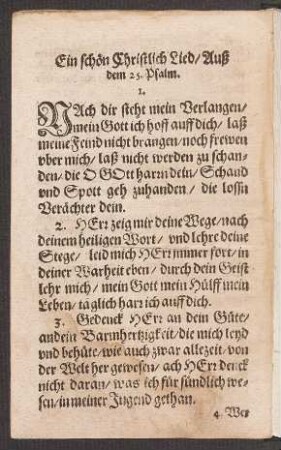 Ein schön Christlich Lied/ Auß
dem 25. Psalm.
1.
NAch dir steht mein Verlangen/
mein Gott ich hoff auff dich/ laß
meine Feind nicht brangen/ noch frewen
vber mich/ laß nicht werden zu schan-
den/ die O GOtt harrn dein/ Schand
vnd Spott geh zuhanden/ die losen
Verächter dein.
2. HErr zeig mir deine Wege/ nach
deinem heiligen Wort/ vnd lehre deine
Stege/ leid mich HErr immer fort/ in
deiner Warheit eben/ durch dein Geist
lehr mich/ mein Gott mein Hülff mein
Leben/ täglich harr ich auff dich.
3. Gedenck HErr an dem Güte/
an dein Barmhertzigkeit/ die mich leyd
vnd behüte/ wie auch zwar allezeit/ von
der Welt her gewesen/ ach HErr denck
nicht daran/ was ich für sündlich we-
sen/ in meiner Jugend gethan.
4. Wer